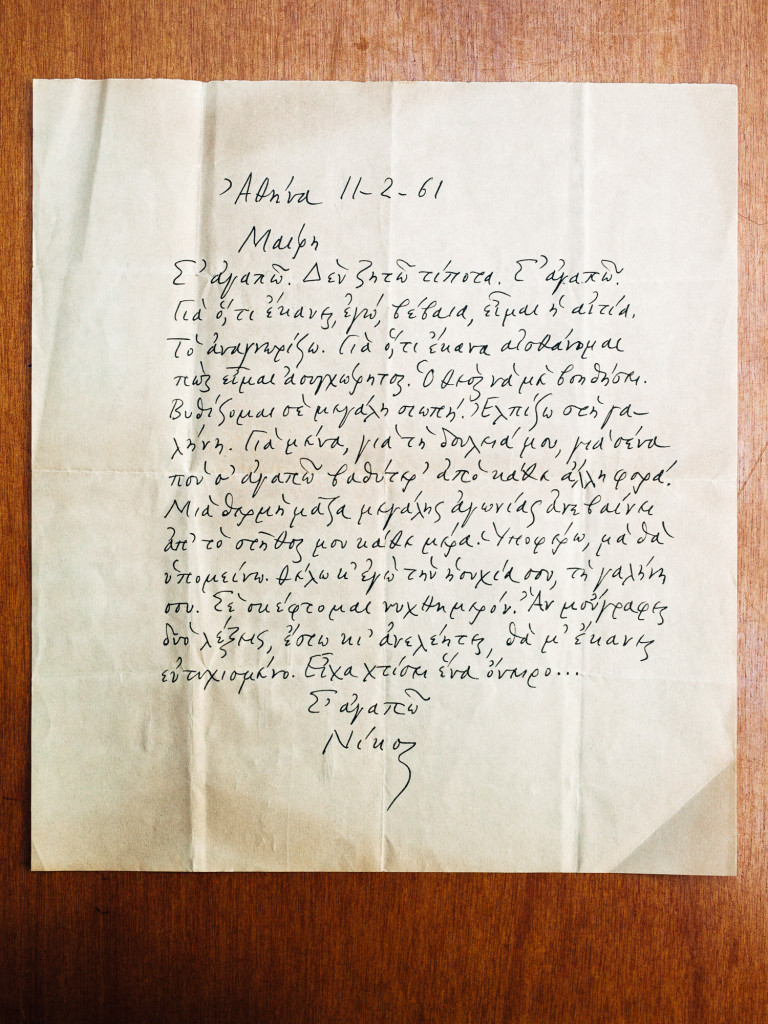 Ἀθήνα 11-2-61
Μαίρη
Σ' ἀγαπῶ. Δὲν ζητῶ τίποτα. Σ' ἀγαπῶ.
Γιὰ ὅ,τι ἔκανες, ἐγώ, βέβαια, εἶμαι ἡ αἰτία.
Τὸ ἀναγνωρίζω. Γιὰ ὅ,τι ἔκανα αἰσθάνομαι
πὼς εἶμαι ἀσυγχώρητος. Ὁ θεὸς νὰ μὲ βοηθήσει.
Βυθίζομαι σὲ μεγάλη σιωπή. Ἐλπίζω στὴ γα-
λήνη. Γιὰ μένα, γιὰ τὴ δουλειά μου, γιὰ σένα
ποὺ σ' ἀγαπῶ βαθύτερ' ἀπὸ κάθε ἄλλη φορά.
Μιὰ θερμὴ μάζα μεγάλης ἀγωνίας ἀνεβαίνει
ἀπ' τὸ στῆθος μου κάθε μέρα. Ὑποφέρω, μὰ θὰ
ὑπομείνω. Θέλω κ' ἐγὼ τὴν ἡσυχία σου, τὴ γαλήνη
σου. Σὲ σκέφτομαι νυχθημερόν. Ἂν μοὔγραφες
δυὸ λέξεις, ἔστω κι' ἀνελέητες, θὰ μ' ἔκανες
εὐτυχισμένο. Εἶχα χτίσει ἕνα ὄνειρο...
Σ' ἀγαπῶ
Νίκος